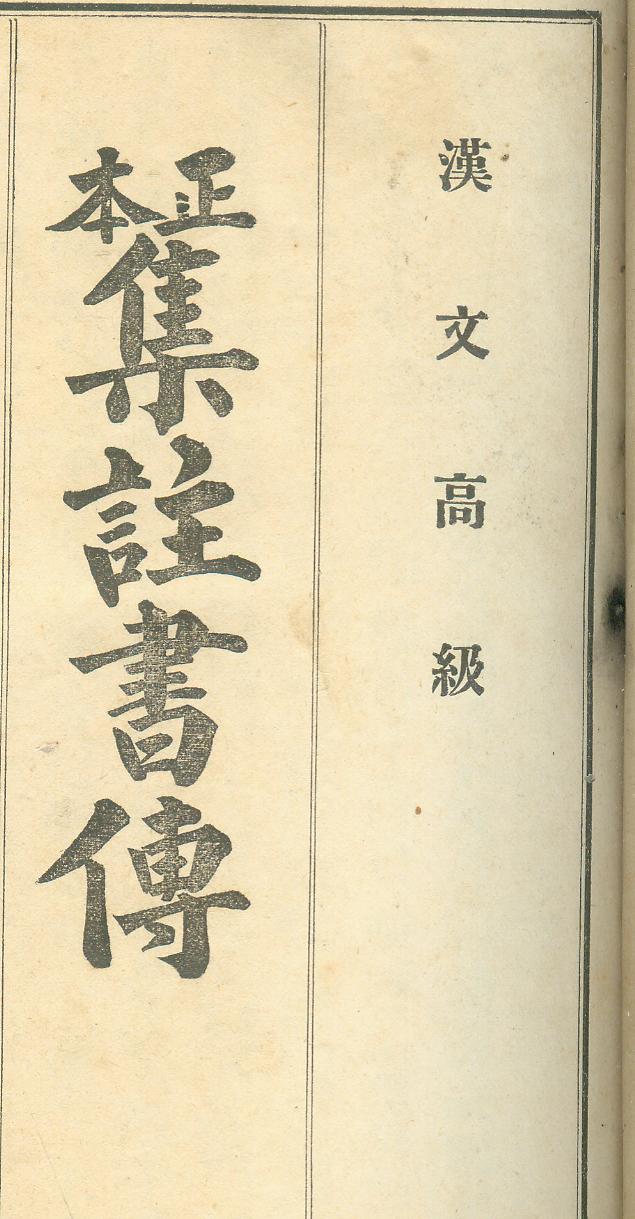 漢文高級
正本
集註書傳